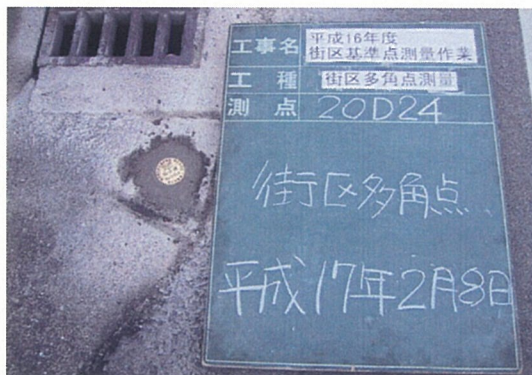 工事名 平成16年度
街区基準点測量作業
工種 街区多角点測量
測点 20D24
街区多角点
平成17年2月8日